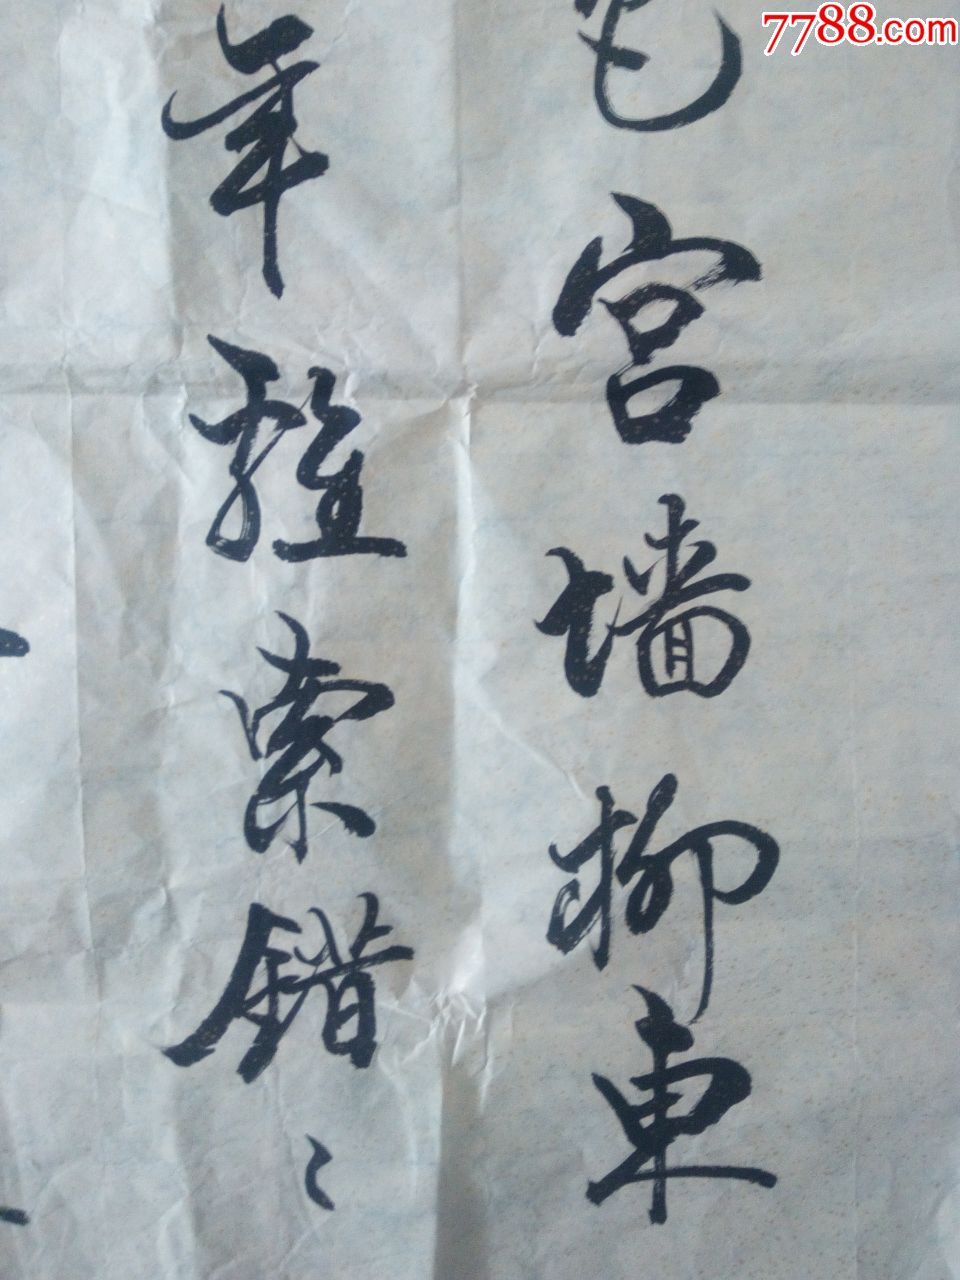 7788.com
色宫墙柳東
年離索錯々々